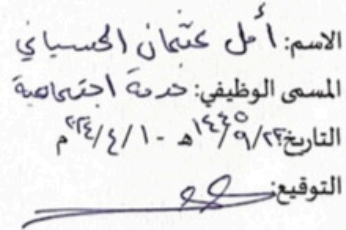 الاسم: أمل عثمان الحسياني
المسمى الوظيفي: خدمة اجتماعية
التاريخ: ١٤٤٥/٩/٢٢ هـ - ٢٠٢٤/٤/١ م
التوقيع: